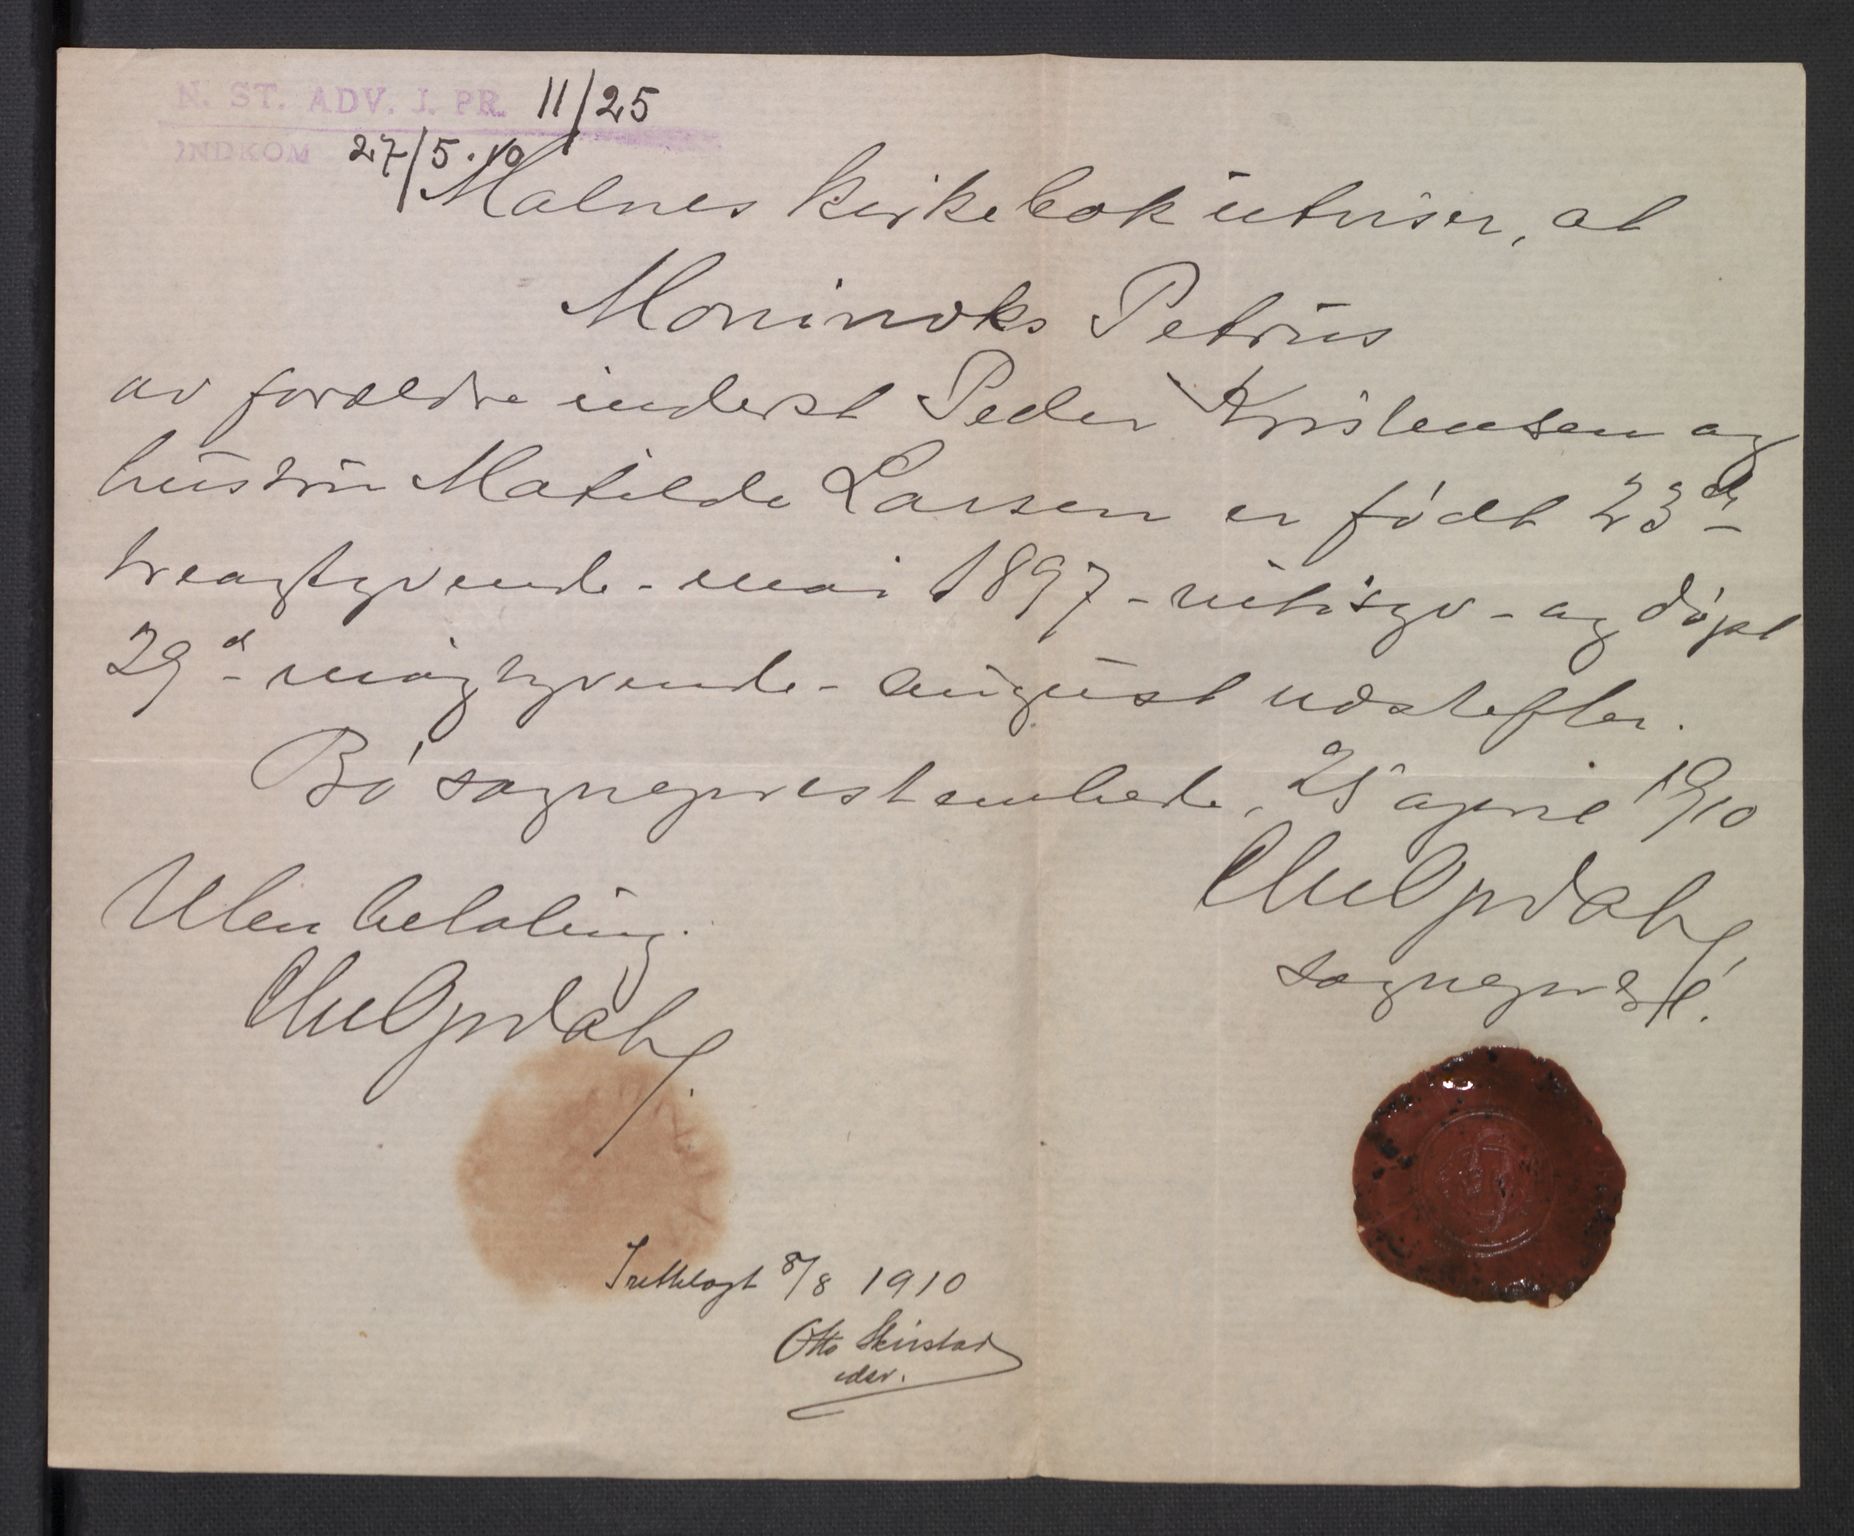 N. ST. ADV. I. PR. 11/25
INDKOM 27/5.10
Malnes kirkebok utviser, at
Moninoks Petrus
av forældre inderst Peder Kristensen og
hustru Matilde Larsen er født 23d
treogtyvende - mai 1897 - nitisyv - og døpt
29d - niogtyvende - august næstefter.
Bø sogneprestembede, 25 april 1910
Chr Opdahl
sogneprest.
Uten betaling.
Chr Opdahl
Irettelagt 8/8 1910
Otto Skirstad